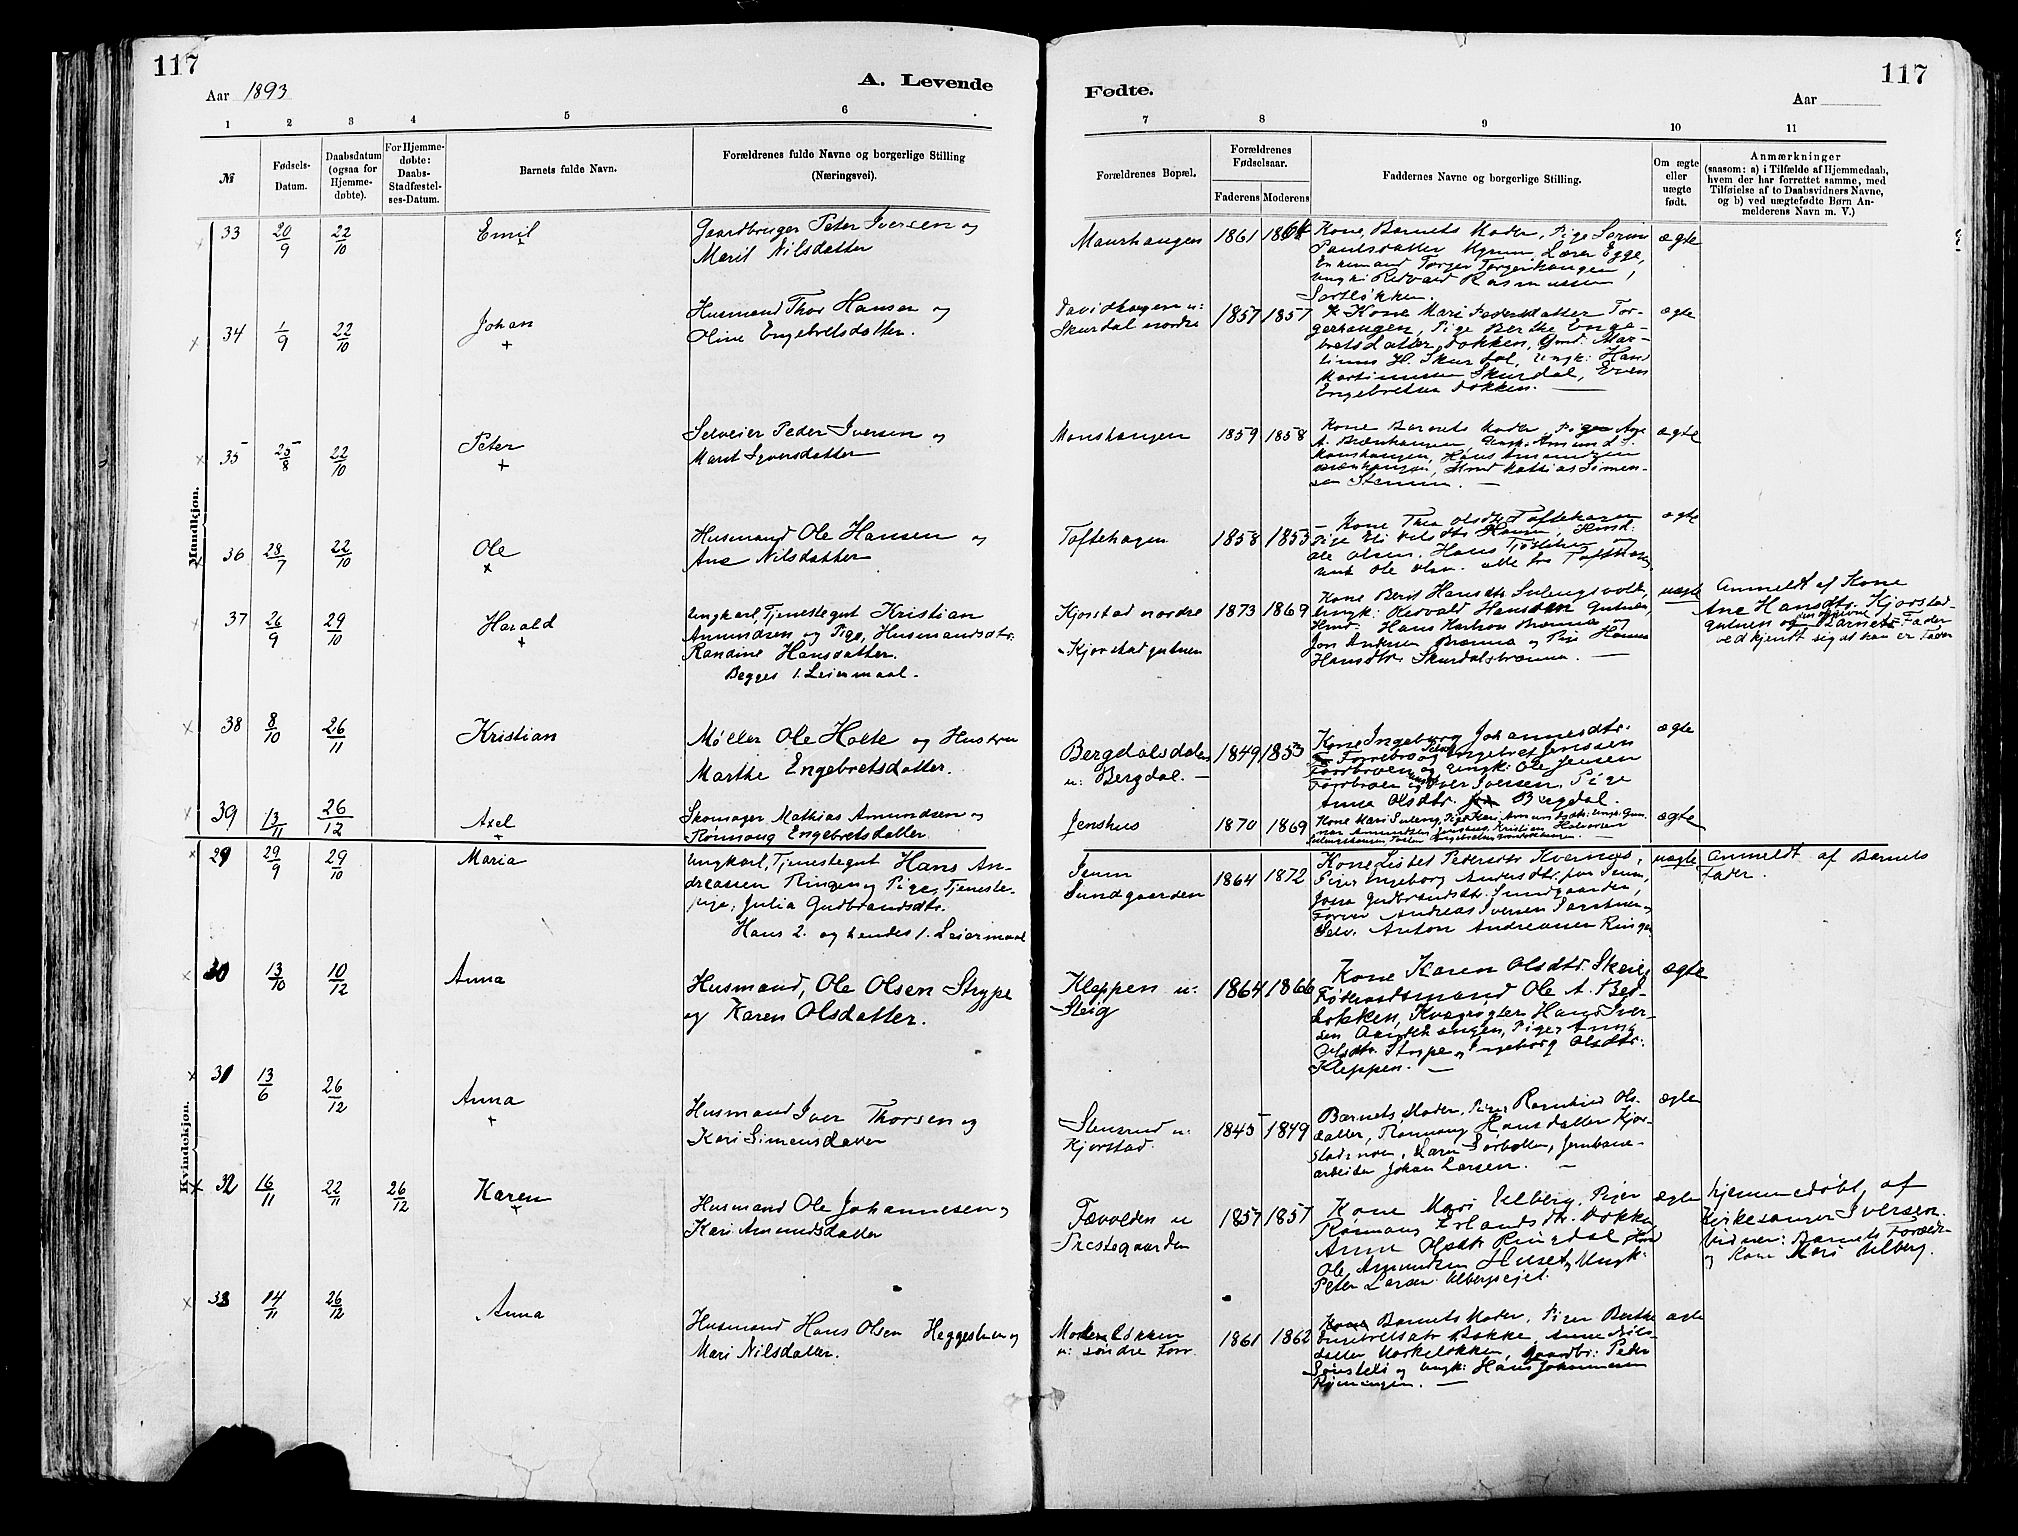 117
Aar 1893
A. Levende
1 2 3 4 5 6
№
Fødsels-
Datum.
Daabsdatum
(ogsaa for
Hjemme-
døbte).
For Hjemme-
døbte:
Daabs-
Stadfæstel-
ses-Datum.
Barnets fulde Navn.
Forældrenes fulde Navne og borgerlige Stilling
(Næringsvei).
Mandkjøn.
33 20/9 22/10 Emil
Gaardbruger Peter Iversen og
Marit Nilsdatter
34 1/9 22/10 Johan
Husmand Thor Hansen og
Oline Engebretsdatter.
35 25/8 22/10 Peter
Selveier Peder Iversen og
Marit Syversdatter
36 28/7 22/10 Ole
Husmand Ole Hansen og
Ane Nilsdatter
37 26/9 29/10 Harald
Ungkarl, Tjenestegut Kristian
Amundsen og Pige, Husmandsdtr.
Randine Hansdatter.
Begges 1. Leiermaal.
38 8/10 26/11 Kristian
Møller Ole Holte og Hustru
Marthe Engebretsdatter.
39 13/11 26/12 Axel
Skomager Mathias Amundsen og
Rønnaug Engebretsdatter
Kvindekjøn.
29 29/9 29/10 Maria
Ungkarl, Tjenestegut Hans An-
dreassen Ringen og Pige, Tjeneste-
pige, Julia Gudbrandsdtr.
Hans 2. og hendes 1. Leiermaal
30 13/10 10/12 Anna
Husmand, Ole Olsen Strype
og Karen Olsdatter.
31 13/6 26/12 Anna
Husmand Iver Thorsen og
Kari Simensdatter
32 16/11 22/11 26/12 Karen
Husmand Ole Johannesen og
Kari Amundsdatter
33 14/11 26/12 Anna
Husmand Hans Olsen Heggestuen og
Mari Nilsdatter.
117
Fødte.
Aar
7 8 9 10 11
Forældrenes Bopæl.
Forældrenes
Fødselsaar.
Faderens Moderens
Faddernes Navne og borgerlige Stilling.
Om ægte
eller
uægte
født.
Anmærkninger
(saasom: a) i Tilfælde af Hjemmedaab,
hvem der har forrettet samme, med
Tilføielse af to Daabsvidners Navne,
og b) ved uægtefødte Børn An-
melderens Navn m. V.)
Maurhaugen 1861 1864
Kone, Barnets Moder, Pige
Lærer Egge,
Enkemand Torger Torgerhaugen,
Ungk: Redvald Rasmussen
Sortløkken.
ægte
Davidhaugen u:
Skurdal nordre 1857 1857
Kone Mari Pedersdatter Tor-
gerhaugen, Pige Berthe Enge-
bretsdatter Dokken, Gmd. Mar-
tinus H. Skurdal, Ungk: Hans
Martinussen Skurdal, Even
Engebretsen Dokken.
ægte
Monshaugen 1859 1858
Kone Barnets Moder, Pige
Ungk: Amund S.
Monshaugen, Hans Amundsen
Mathias Simen-
sen
ægte
Toftehagen 1858 1853
Kone Thea Olsdtr. Toftehagen
Ole Olsen, Hans
ægte
Kjorstad nordre
Kjorstadgutuen 1873 1869
Kone Berit Hansdtr. Sulengsvold,
Ungk: Redvald Hansen Gutuen,
Hans Brænna og
Jon Brænna og Pige
Hansdtr. Skurdalsbrænna.
uægte
Anmeldt af Kone
Ane Hansdtr. Kjorstad-
gutuen og den opgivne Barnets Fader
vedkjendt sig at han er Fader
Bergdalsdalen
u: Bergdal. 1849 1853
Kone Ingeborg Johannesdtr.
Engebret Jenssen
og Ungk: Ole Jensen
og Iver Iversen, Pige
Anna Olsdtr. Bergdal.
ægte
Jenshus 1870 1869
Kone Mari Suleng, Pige Kari Amundsdtr. Ungk: Gun-
nar Amundsen Jenshus, Kristian Halvorsen
ægte
Sundgaarden 1864 1872
Kone Lisbet Pedersdtr. Kvernes,
Piger Ingeborg Andersdtr.
Gudbrandsdtr. Sundgaarden,
Andreas Iversen
Selv. Anton Andreassen Ringen
uægte
Anmeldt af Barnets
Fader.
Kleppen u:
Steig 1864 1866
Kone Karen Olsdtr. Skeie,
Føderaadsmand Ole A. Bed-
Kvægrøgter Hans Iver-
sen Piger Anna
Olsdtr. Strype og Ingeborg Olsdtr.
Kleppen.
ægte
Stensrud u:
Kjorstad. 1845 1849
Barnets Moder, Piger Ragnhild Ols-
datter, Rønnaug Hansdatter Kjor-
stadmoen, Jernbane-
arbeider Johan Larsen.
ægte
Fævolden u
Prestegaarden 1857 1857
Kone Mari Ulberg, Piger
Rønnaug Erlandsdtr. Dokken
Anne Olsdtr. Ringdal,
Ole Amundsen Huset, Ungk:
Peter Larsen Ulbergseiet.
ægte
Hjemmedøbt af
Kirkesanger Iversen.
Vidner: Barnets Forældre
og Kone Mari Ulberg.
u: søndre Forr. 1861 1862
Barnets Moder, Piger Berthe
Engebretsdtr. Bakke, Anne Nils-
datter Gaardbr: Peder
og Ungk: Hans Johannesen
ægte